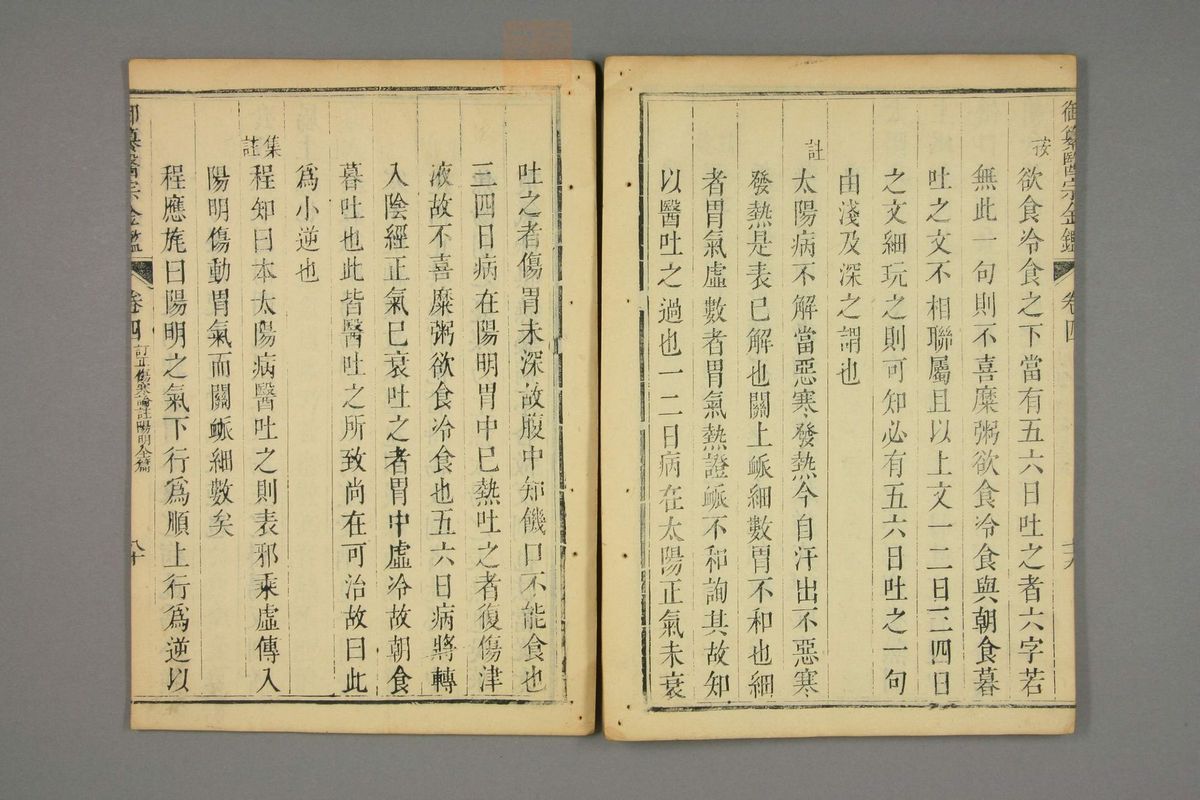 御纂醫宗金鑑 卷四
按
欲食冷食之下當有五六日吐之者六字若
無此一句則不喜糜粥欲食冷食與朝食暮
吐之文不相聯屬且以上文一二日三四日
之文細玩之則可知必有五六日吐之一句
由淺及深之謂也
註
太陽病不解當惡寒發熱今自汗出不惡寒
發熱是表已解也關上脈細數胃不和也細
者胃氣虛數者胃氣熱證脈不和詢其故知
以醫吐之過也一二日病在太陽正氣未衰
吐之者傷胃未深故腹中知饑口不能食也
三四日病在陽明胃中已熱吐之者復傷津
液故不喜糜粥欲食冷食也五六日病將轉
入陰經正氣已衰吐之者胃中虛冷故朝食
暮吐也此皆醫吐之所致尚在可治故曰此
爲小逆也
集註
程知曰本太陽病醫吐之則表邪乘虛傳入
陽明傷動胃氣而關脈細數矣
程應旄曰陽明之氣下行爲順上行爲逆以
御纂醫宗金鑑 卷四 訂正傷寒論註陽明全篇 八十